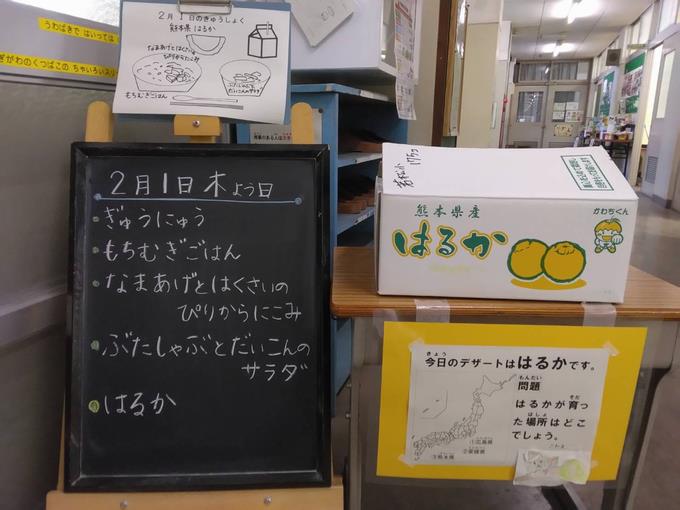 うわばきで はいって
ぎがわのくつばこの ちゃいろいスリ
2月1日のきゅうしょく
熊本県 はるか
なまあげとはくさいの
ぴりからにこみ
ぶたしゃぶと
だいこんのサラダ
もちむぎごはん
2月1日木よう日
ぎゅうにゅう
もちむぎごはん
なまあげとはくさいの
ぴりからにこみ
ぶたしゃぶとだいこんの
サラダ
はるか
熊本県産
はるか
かわちくん
きょう
今日のデザートははるかです。
もんだい
問題
そだ
はるかが育っ
ばしょ
た場所はどこ
でしょう。
①広島県
②愛媛県
③熊本県